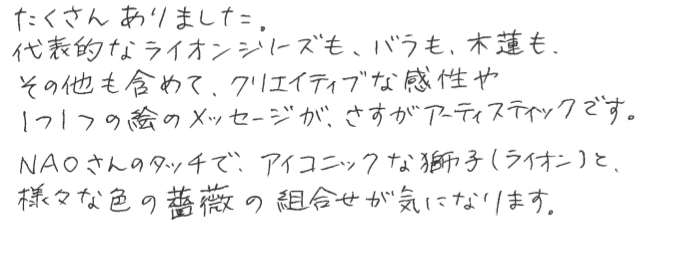 たくさんありました。
代表的なライオンシリーズも、バラも、木蓮も、
その他も含めて、クリエイティブな感性や
1つ1つの絵のメッセージが、さすがアーティスティックです。
NAOさんのタッチで、アイコニックな獅子(ライオン)と、
様々な色の薔薇の組合せが気になります。